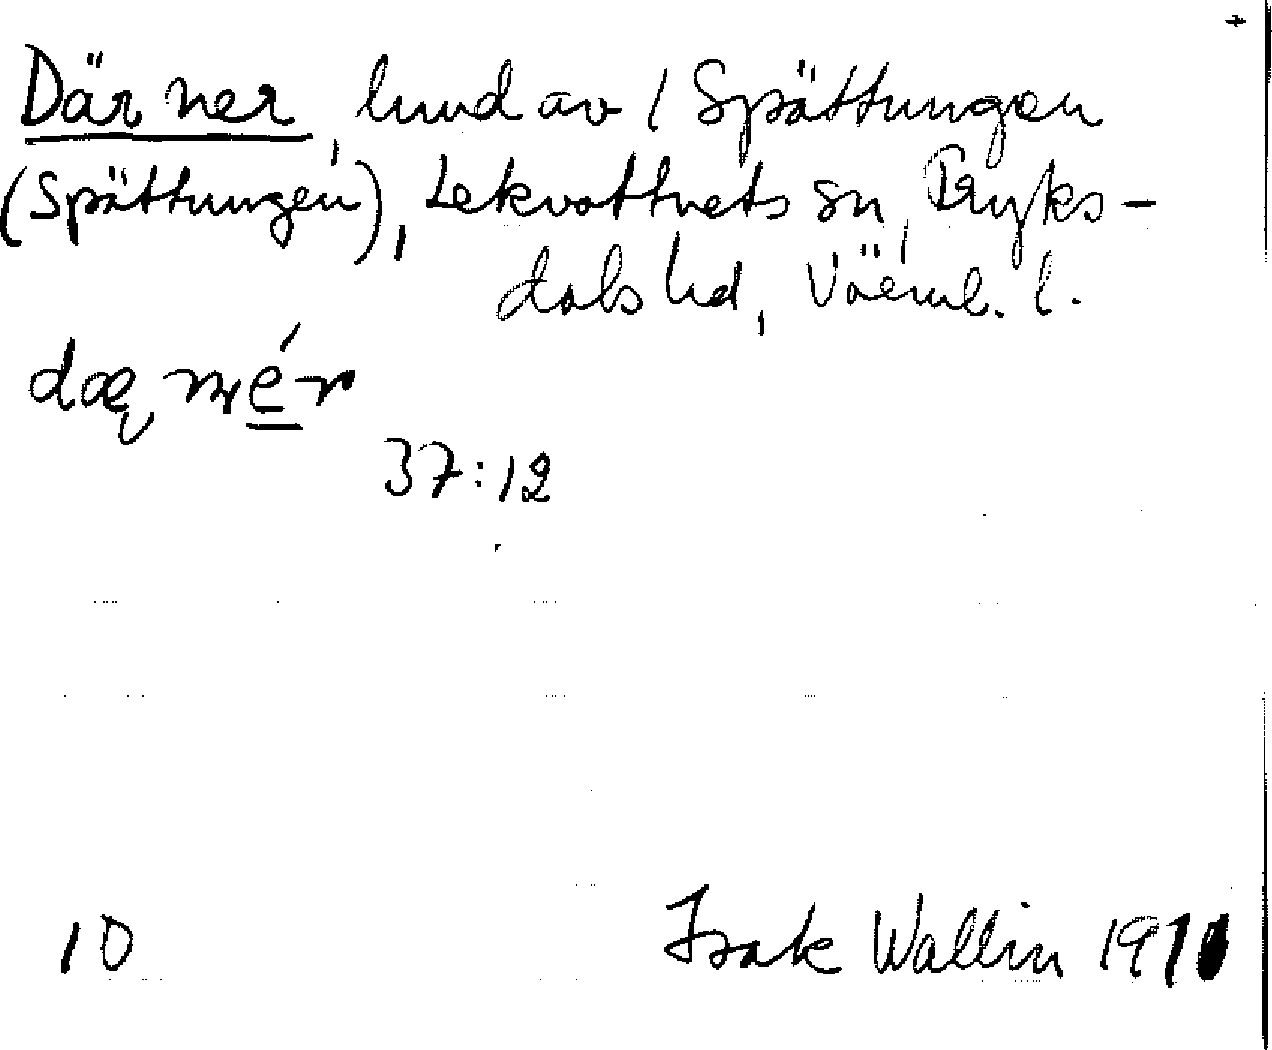 +
Där ner, lund av / Spättungen
(Spättungen), Lekvattnets sn, Fryks-
dals hd, Värml. l.
37:12
10 Isak Wallin 1910